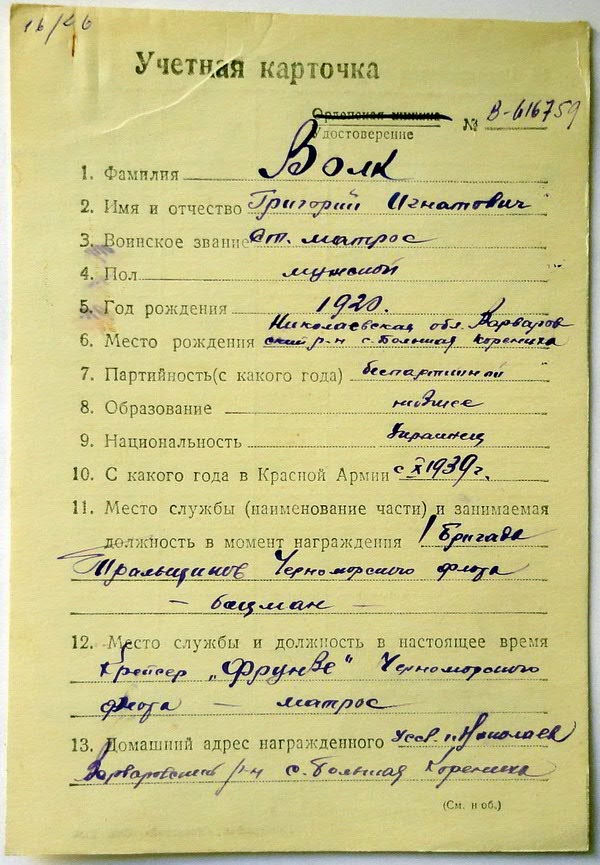 16/26
Учетная карточка
Орденская книжка
Удостоверение № В-616759
1. Фамилия Волк
2. Имя и отчество Григорий Игнатович
3. Воинское звание Ст. матрос
4. Пол мужской
5. Год рождения 1920.
6. Место рождения Николаевская обл. Варваров
ский р-н с. Большая Корениха
7. Партийность(с какого года) беспартийный
8. Образование низшее
9. Национальность Украинец
10. С какого года в Красной Армии с X 1939 г.
11. Место службы (наименование части) и занимаемая
должность в момент награждения 1 Бригада
Тральщиков Черноморского флота
— боцман —
12. Место службы и должность в настоящее время
Крейсер „Фрунзе" Черноморского
флота — матрос
13. Домашний адрес награжденного УССР г. Николаев
Варваровский р-н с. Большая Корениха
(См. н об.)